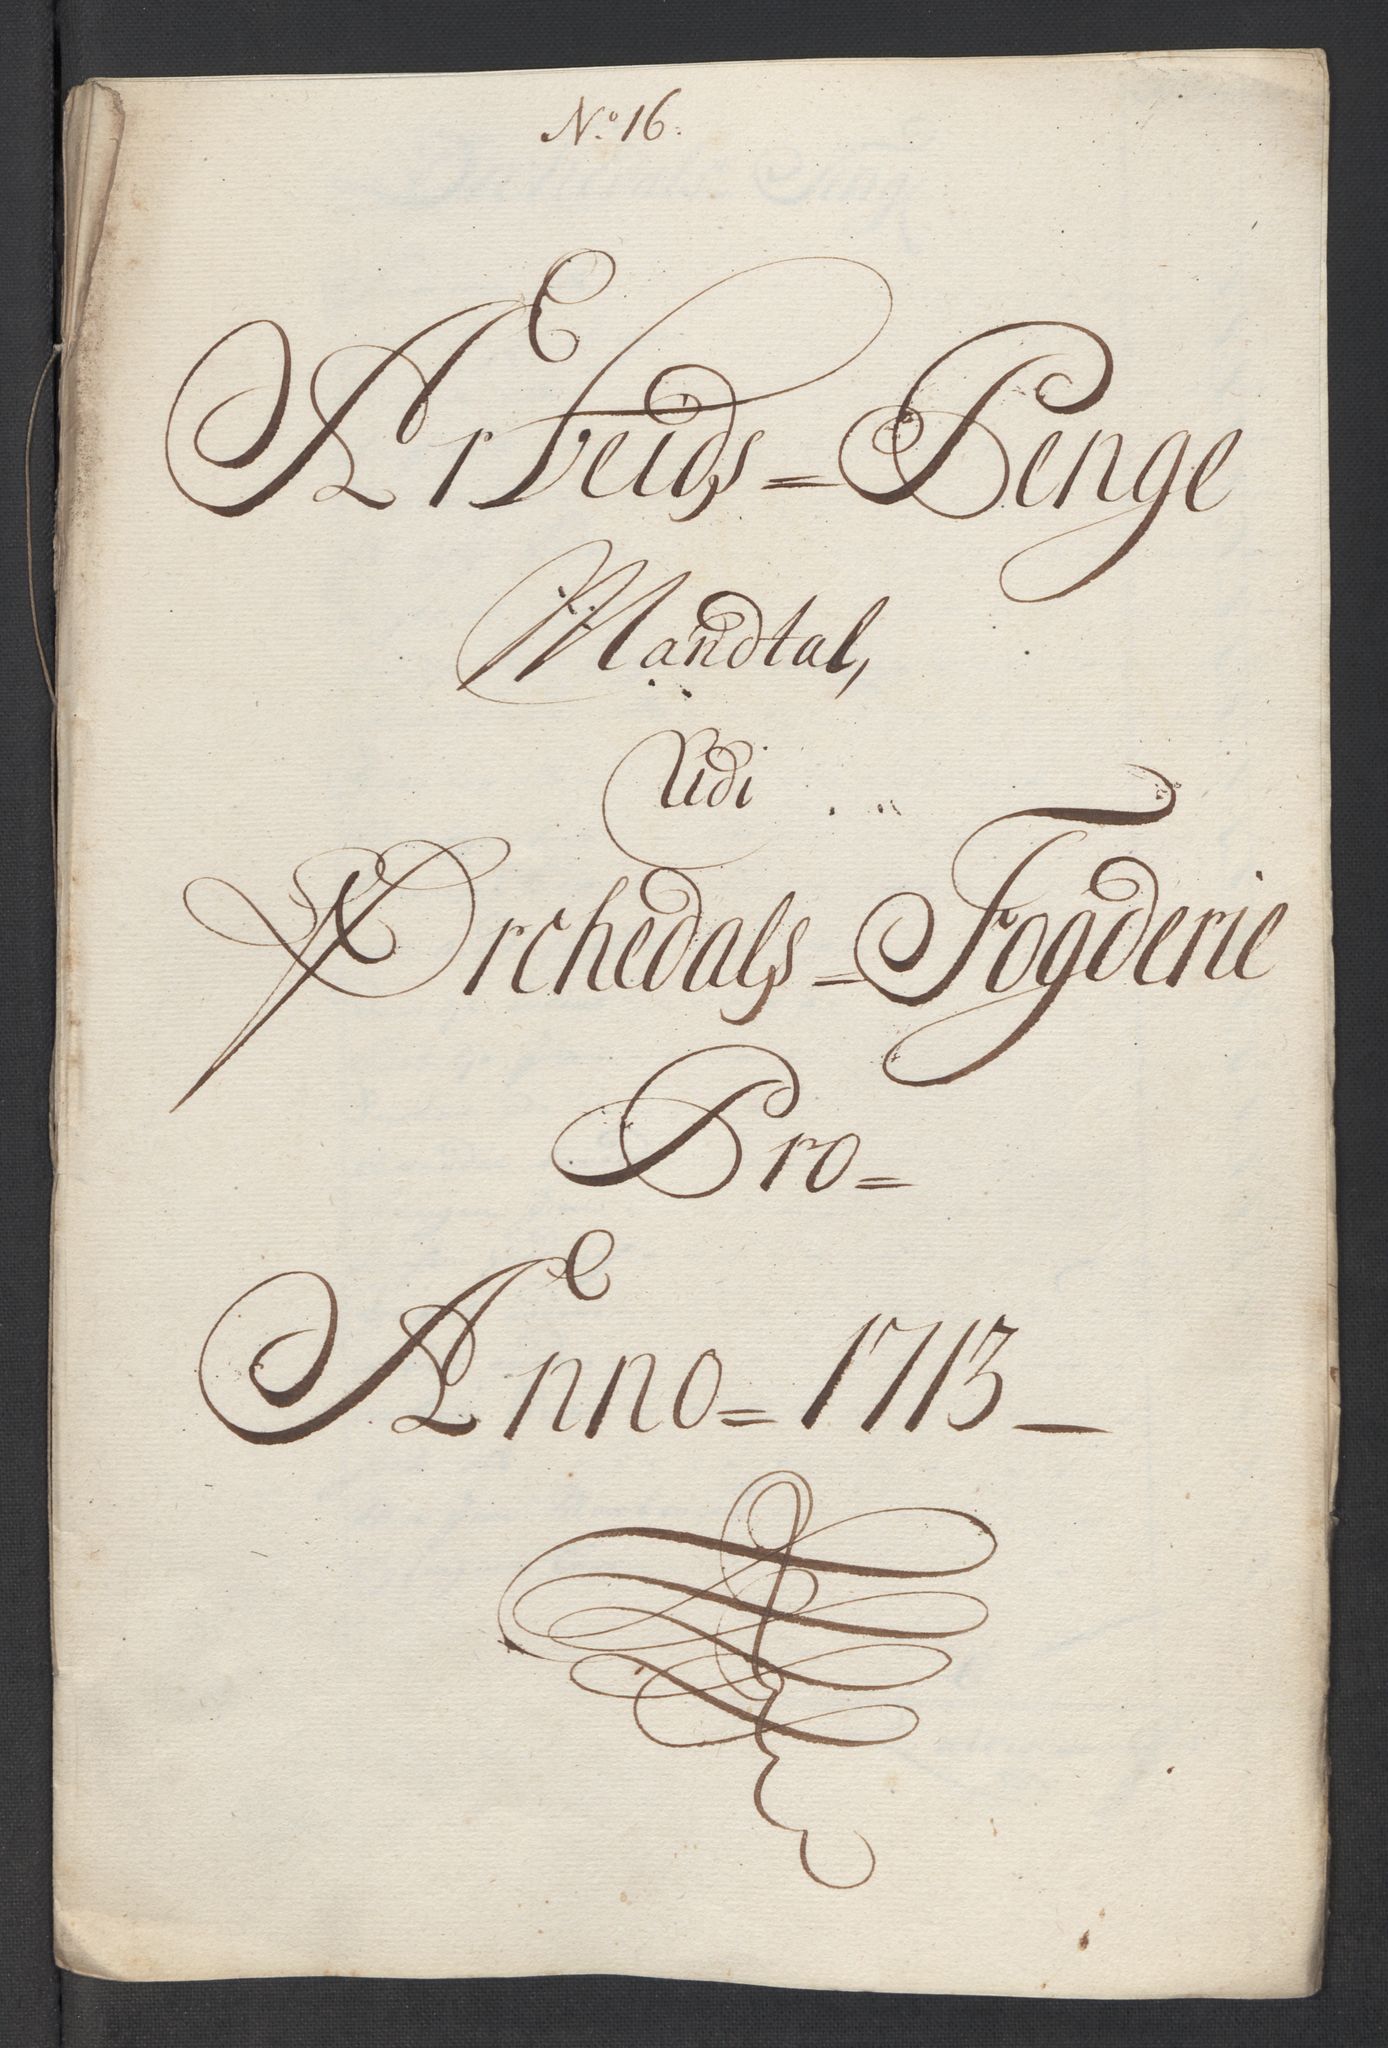 No. 16.
Arbeids-Penge
Mandtal,
Udi
Orchedals-Fogderie
Pro-
Anno-1713-